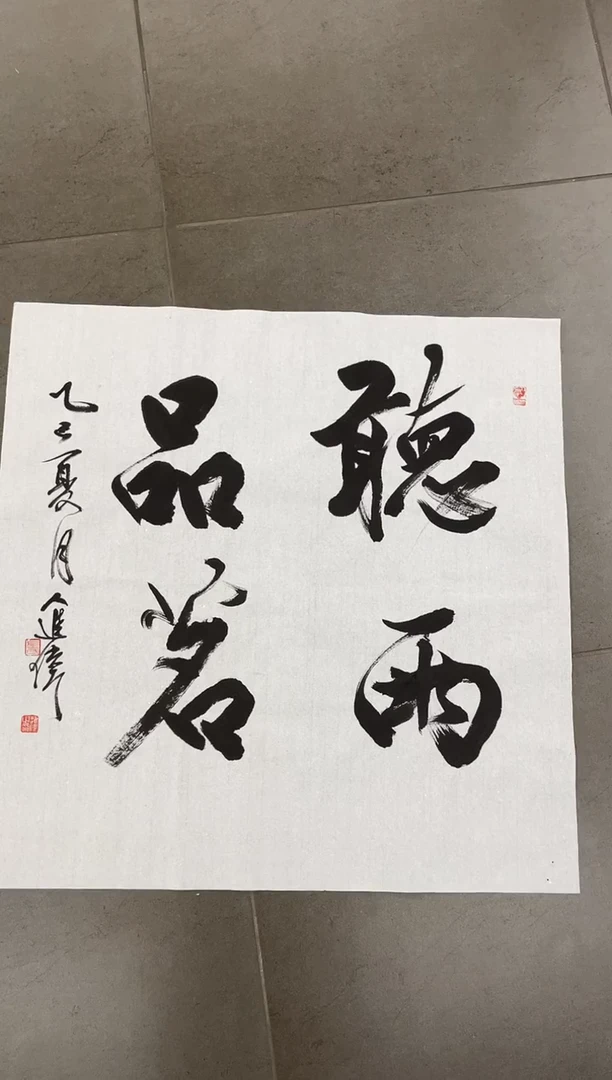 聽雨
品茗
乙巳夏月進偉